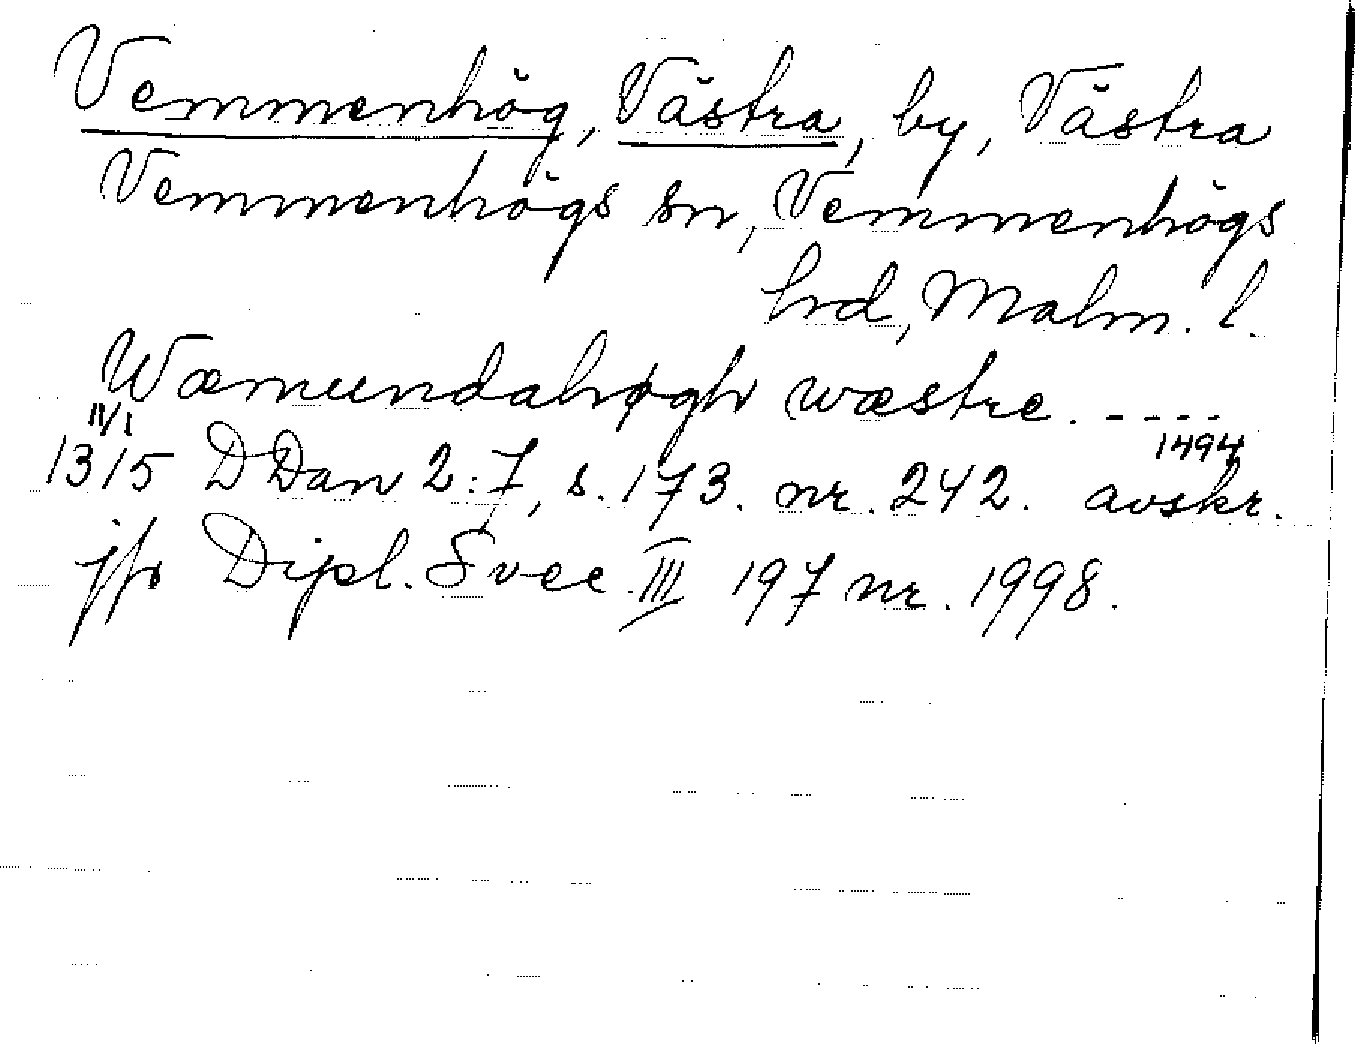 Vemmenhög, Västra, by, Västra
Vemmenhögs sn, Vemmenhögs
hrd, Malm. l.
Wæmundahøgh wæstre. ----
11/1 1494
1315 DDan 2:7, s. 173. nr. 242. avskr.
jfr Dipl. Svec III 197 nr. 1998.